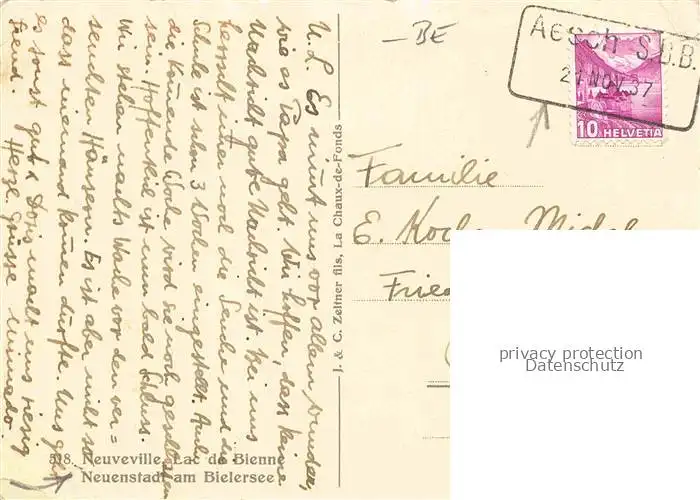 U. L. Es nimmt uns vor allem wunder,
wie es Papa geht. Wir hoffen, dass keine
Nachricht gute Nachricht ist. Bei uns
herrscht immer noch die Seuche und die
Schule ist schon 3 Wochen eingestellt. Auch
die kommende Woche wird sie noch geschlossen
sein. Hoffentlich ist nun bald Schluss.
Wir stehen nachts Wache vor den ver=
seuchten Häusern. Es ist aber nicht so
dass niemand kommen dürfte. Uns geht
es sonst gut & Doris macht uns riesig
Freud. Herzl. Grüsse
J. & C. Zeltner fils, La Chaux-de-Fonds
518. Neuveville, Lac de Bienne
Neuenstadt am Bielersee
– BE
Aesch S.B.B.
21 NOV. 37
10 HELVETIA
Familie
E. Koch
Fried
privacy protection
Datenschutz